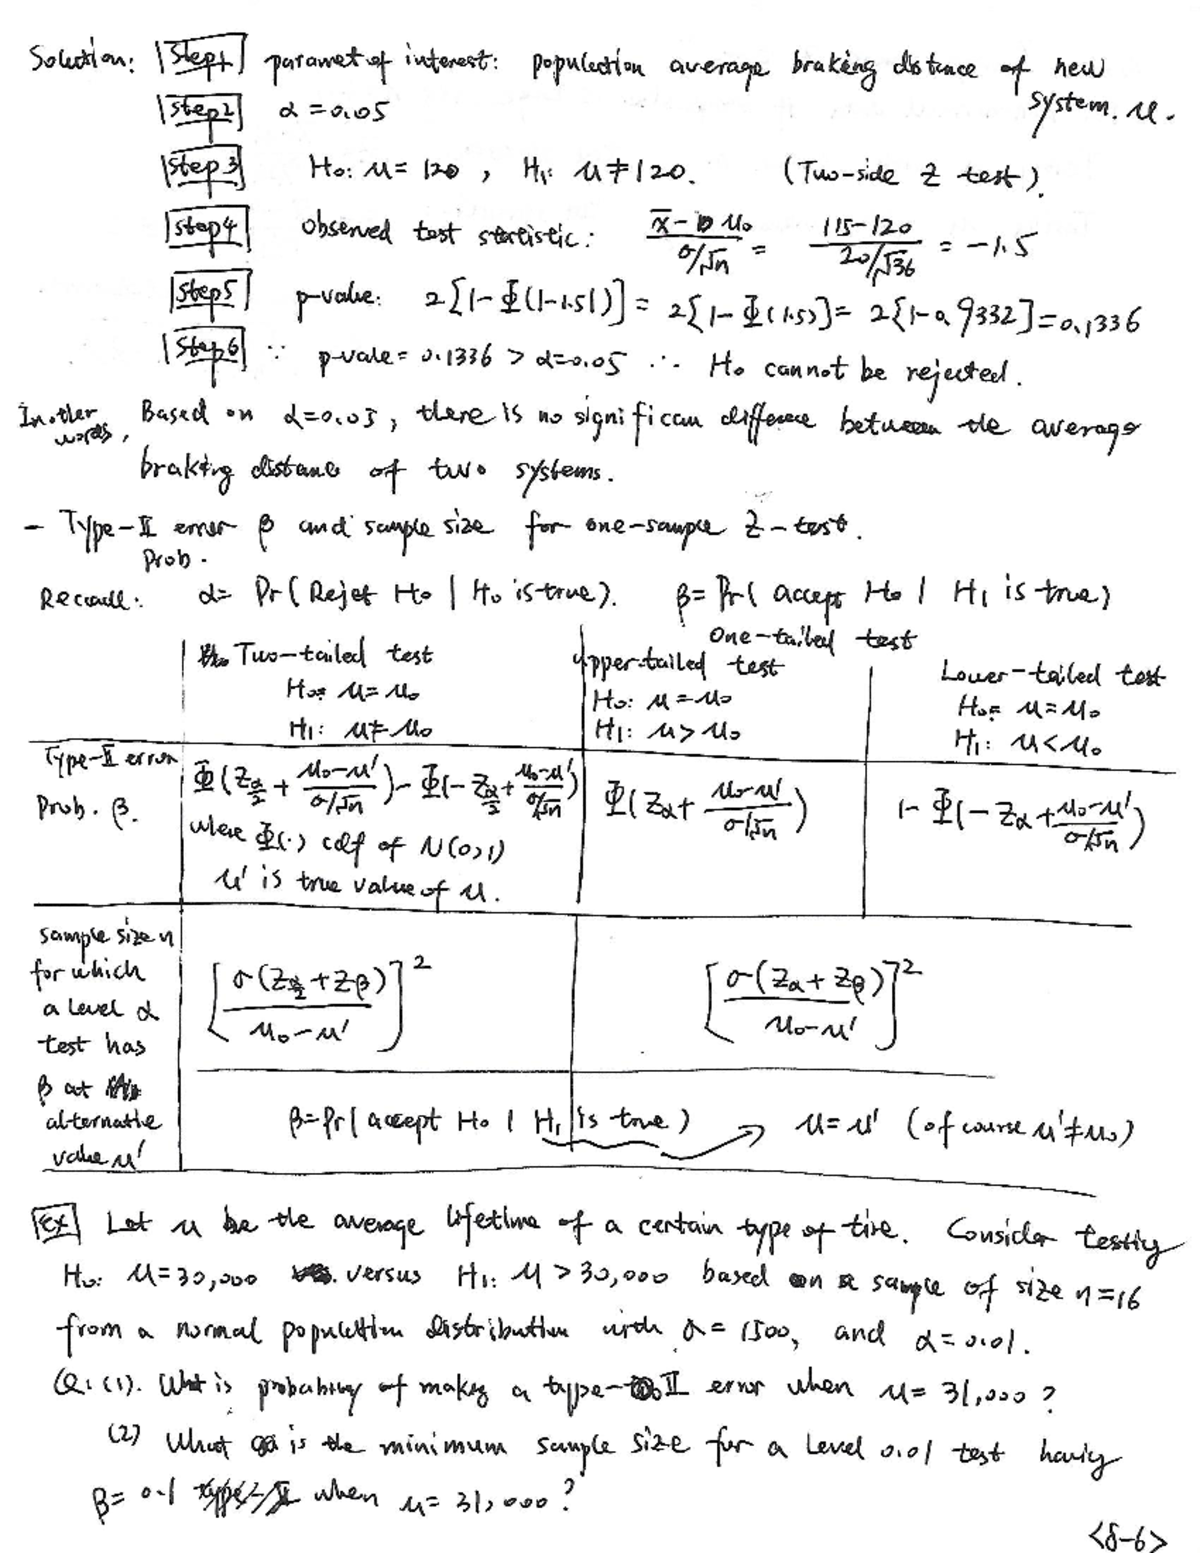 Solution: Step1 paramet of interest: population average braking distance of new system. μ.
Step2 α=0.05
Step3 H₀: μ=120, H₁: μ≠120. (Two-side Z test).
Step4 observed test statistic: (x̄-μ₀)/(σ/√n) = (115-120)/(20/√36) = -1.5
Step5 p-value: 2[1-Φ(|-1.5|)] = 2[1-Φ(1.5)] = 2[1-0.9332] = 0.1336
Step6 ∵ p-vale = 0.1336 > α=0.05 ∴ H₀ cannot be rejected.
In other words, Based on α=0.05, there is no significan difference between the average
braking distance of two systems.
- Type-II error β and sample size for one-sample Z-test.
Prob.
Recall: α= Pr(Rejet H₀ | H₀ is true). β= Pr(accept H₀ | H₁ is true)
One-tailed test
Two-tailed test
H₀: μ=μ₀
H₁: μ≠μ₀
upper-tailed test
H₀: μ=μ₀
H₁: μ>μ₀
Lower-tailed test
H₀: μ=μ₀
H₁: μ<μ₀
Type-II error
Prob. β.
Φ(Z_{α/2} + (μ₀-μ')/(σ/√n)) - Φ(-Z_{α/2} + (μ₀-μ')/(σ/√n))
where Φ(·) cdf of N(0,1)
μ' is true value of μ.
Φ(Zα + (μ₀-μ')/(σ/√n))
1-Φ(-Zα + (μ₀-μ')/(σ/√n))
sample size n
for which
a level α
test has
β at
alternative
value μ'
[σ(Z_{α/2}+Zβ)/(μ₀-μ')]²
[σ(Zα+Zβ)/(μ₀-μ')]²
β=Pr(accept H₀ | H₁ is true) → μ=μ' (of course μ'≠μ₀)
Ex Let μ be the average lifetime of a certain type of tire. Consider testing
H₀: μ=30,000 versus H₁: μ>30,000 based on a sample of size n=16
from a normal population distribution with σ=1500, and α=0.01.
Q: (1). What is probability of making a type-II error when μ=31,000?
(2) What is the minimum sample size for a level 0.01 test having
β=0.1 when μ=31,000?
<8-6>